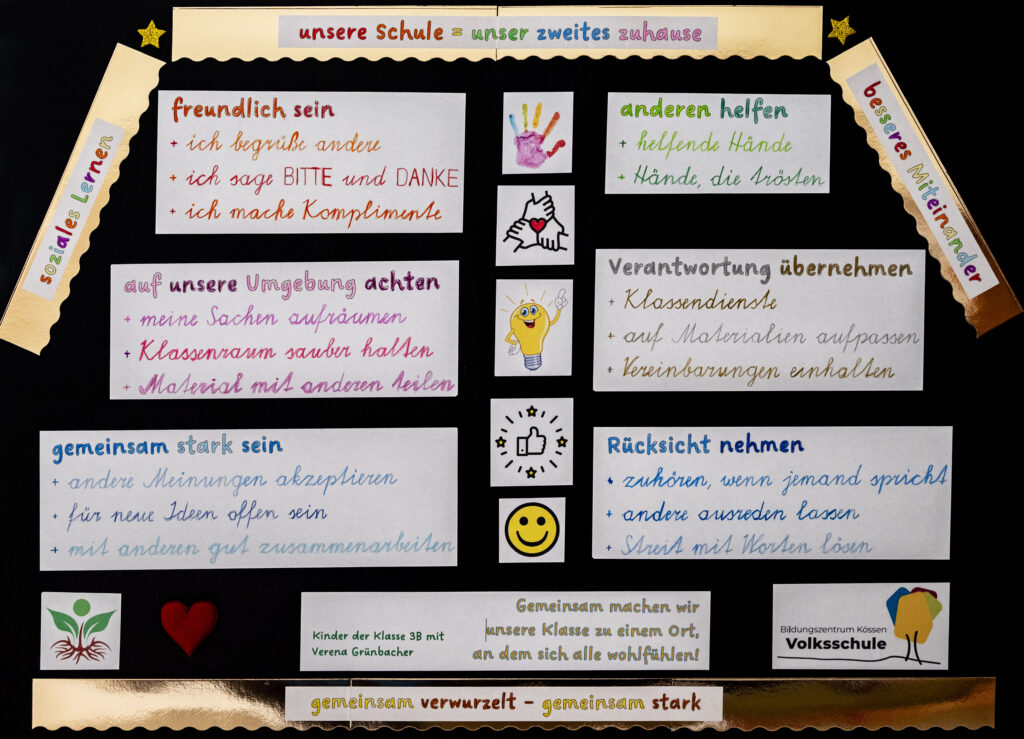 unsere Schule = unser zweites zuhause
soziales Lernen
besseres Miteinander
freundlich sein
+ ich begrüße andere
+ ich sage BITTE und DANKE
+ ich mache Komplimente
anderen helfen
+ helfende Hände
+ Hände, die trösten
auf unsere Umgebung achten
+ meine Sachen aufräumen
+ Klassenraum sauber halten
+ Material mit anderen teilen
Verantwortung übernehmen
+ Klassendienste
+ auf Materialien aufpassen
+ Vereinbarungen einhalten
gemeinsam stark sein
+ andere Meinungen akzeptieren
+ für neue Ideen offen sein
+ mit anderen gut zusammenarbeiten
Rücksicht nehmen
+ zuhören, wenn jemand spricht
+ andere ausreden lassen
+ Streit mit Worten lösen
Kinder der Klasse 3B mit
Verena Grünbacher
Gemeinsam machen wir
unsere Klasse zu einem Ort,
an dem sich alle wohlfühlen!
Bildungszentrum Kössen
Volksschule
gemeinsam verwurzelt - gemeinsam stark